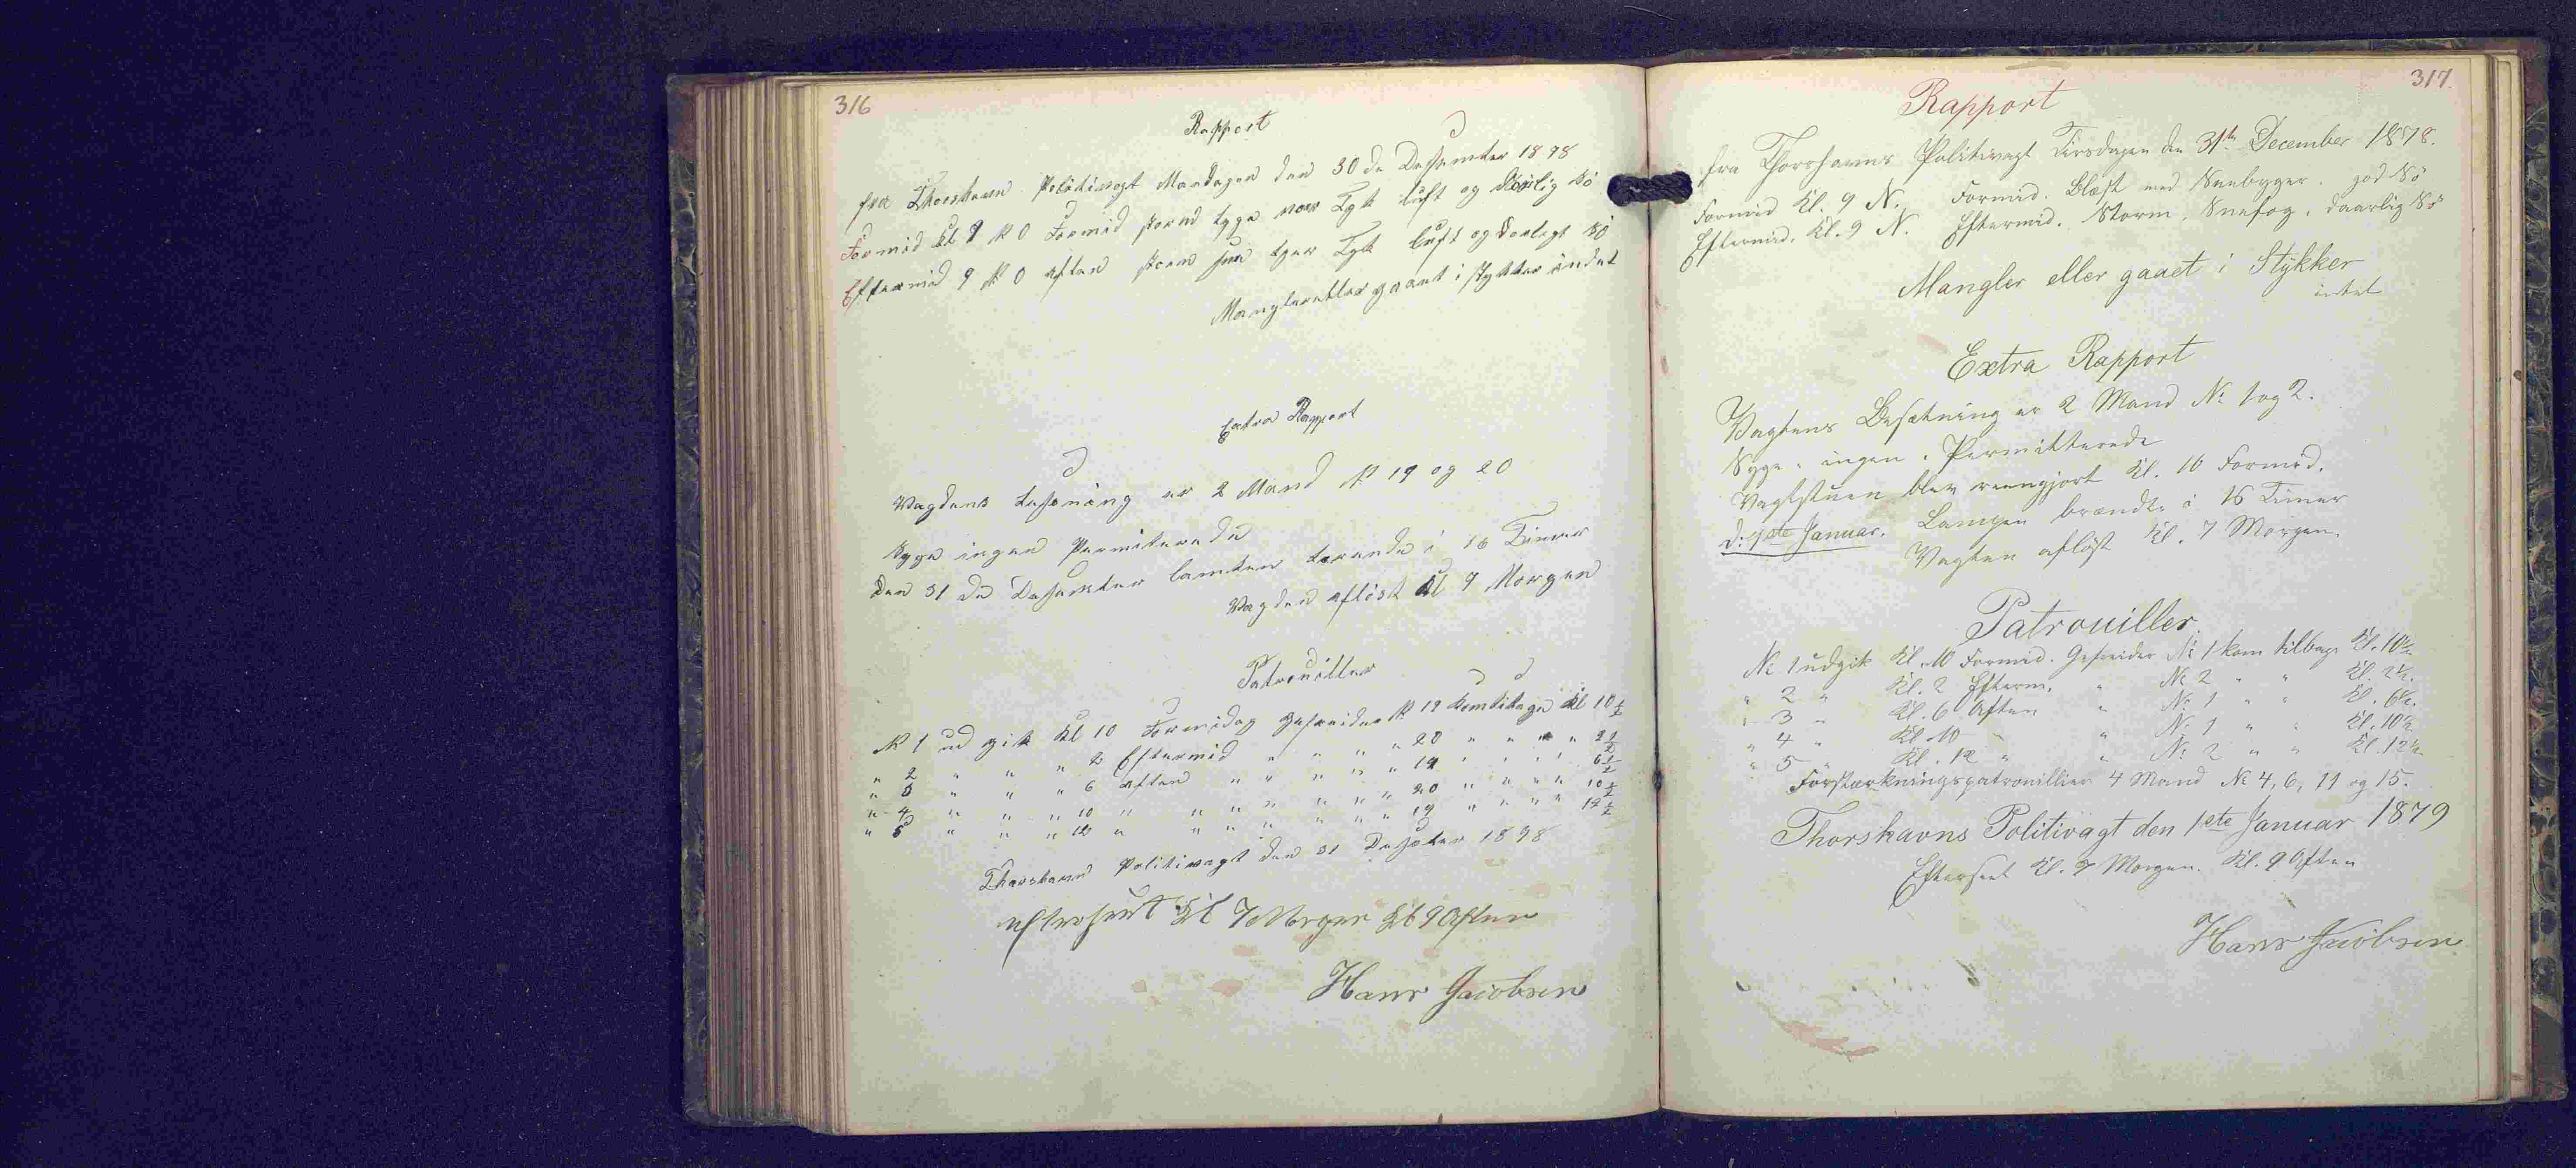 316
Rapport
fra Thorshavn Politivagt Mandagen den 30 de Desember 1878
Formid Kl 9 N O Formid storm Lyge Luft og Dorlig Sö
Eftermid 9 N O aften storm Luft og Dorligt Sö
Mangler eller gaaet i stykker indet
Extra Rapport
Vagdens besening er 2 Mand N 19 og 20
Syge ingen Permiterede
Den 31 de Desember lamten brende i 16 Timer
Vagden aflöst Kl 7 Morgen
Patrouiller
N 1 ud gik Kl 10 Formidag Gefreider N 19 Kom tibage Kl 10 1/2
" 2 " " " 2 Eftermid " " " " " 20 " " " " 2 1/2
" 3 " " " 6 aften " " " " " 19 " " " " 6 1/2
" 4 " " " 10 " " " " " " " 20 " " " " 10 1/2
" 5 " " " 12 " " " " " " " 19 " " " " 12 1/2
Thorshavn Politivagt den 31 Desember 1878
efterseet Kl 7 Morgen Kl 9 Aften
Hans Jacobsen
317
Rapport
fra Thorshavns Politivagt Tirsdagen den 31te December 1878.
Formid Kl. 9 N. Formid. Blæst med Sneebyger. god Sö
Eftermid. Kl. 9 N. Eftermid. Storm. Snefog. daarlig Sö
Mangler eller gaaet i Stykker
intet
Extra Rapport
Vagtens Besætning er 2 Mand No 1 og 2.
Syge. ingen. Permitterede
Vagtstuen blev reengjort Kl. 10 Formid.
D: 1ste Januar. Lampen brændte i 16 Timer
Vagten aflöst Kl. 7 Morgen.
Patrouiller.
No 1 udgik Kl. 10 Formid. Gefreider No 1 kom tilbage Kl. 10 1/2.
" 2 " Kl. 2 Efterm. " No 2 " " Kl. 2 1/2.
" 3 " Kl. 6 Aften " No 1 " " Kl. 6 1/2.
" 4 " Kl. 10 " " No 1 " " Kl. 10 1/2
" 5 " Kl. 12 " " No 2 " " Kl. 12 1/2.
Forstærkningspatrouillien 4 Mand No 4, 6, 11 og 15.
Thorshavns Politivagt den 1ste Januar 1879
Efterseet Kl. 7 Morgen. Kl. 9 Aften
Hans Jacobsen